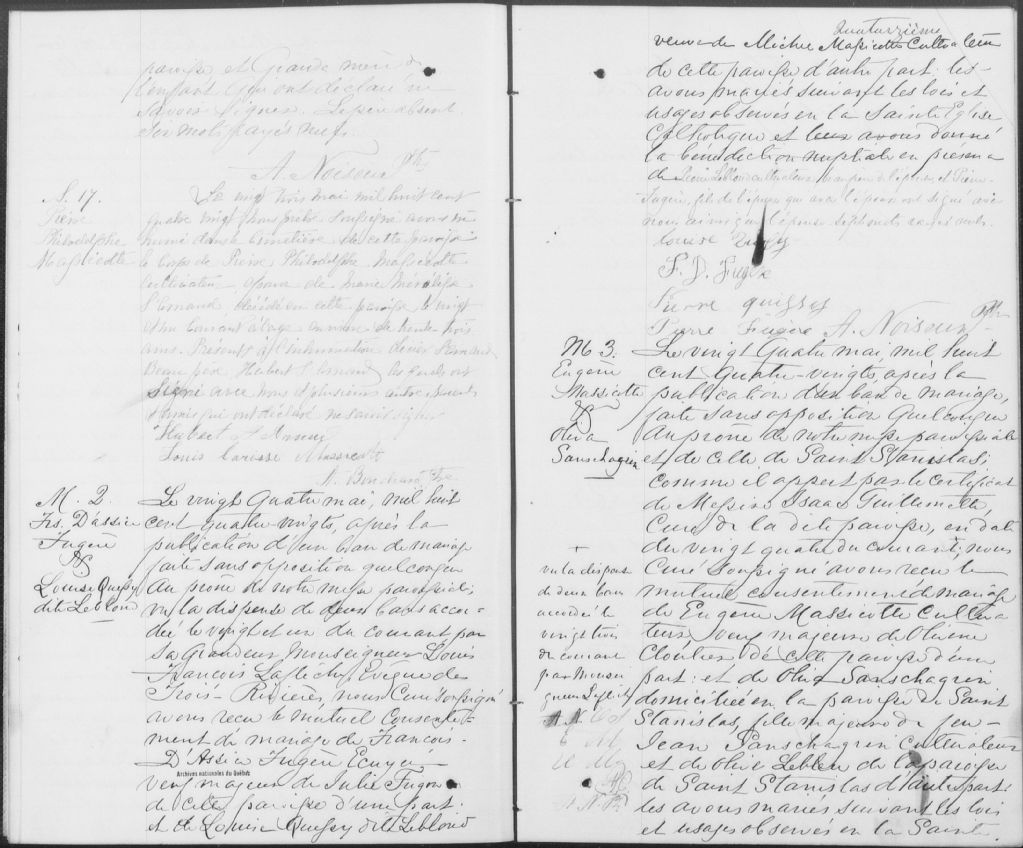 paroisse et Grande mère de
l'enfant qui ont déclaré ne
savoir signer. Le père absent.
mots rayés nuls.
A. Noiseux Ptre
S. 17.
Pierre
Philadelphe
Massicotte
Le vingt trois mai mil huit cent
quatre vingt nous prêtre soussigné avons in
humé dans le cimetière de cette paroisse
le corps de Pierre Philadelphe Massicotte
cultivateur époux de Marie
St Arnaud, décédé en cette paroisse le vingt
et un courant à l'âge environ de trente trois
ans. Présents à l'inhumation
Beau père Hubert St Arnaud
signé avec nous et plusieurs autres parents
et amis qui ont déclaré ne savoir signer
Hubert St Arnaud
Louis Massicott
M. 2.
Frs. D'assise
Fugère
&
Louise Quessy
dit Leblond
Le vingt quatre mai, mil huit
cent quatre-vingts, après la
publication d'un ban de mariage
faite sans opposition quelconque
au prône de notre messe paroissiale;
vu la dispense de deux bans accor-
dée le vingt et un du courant par
Sa Grandeur Monseigneur Louis
François Laflèche, Evêque des
Trois-Rivières, nous Curé soussigné
avons reçu le mutuel consente-
ment de mariage de François-
D'Assise Fugère Ecuyer
Archives nationales du Québec
veuf majeur de Julie Fugère
de cette paroisse d'une part.
et de Louise Quessy dit Leblond
Quatorzième
veuve de Michel Massicotte Cultivateur
de cette paroisse d'autre part: les
avons mariés suivant les lois et
usages observés en la Sainte Eglise
Catholique et leur avons donné
la bénédiction nuptiale en présence
de Leblond cultivateur de l'épouse, et Pierre
Fugère, fils de l'époux qui avec l'époux ont signé avec
nous ainsi que l'épouse
Louise Quessy
F. D. Fugère
Pierre quessy
Pierre Fugère A. Noiseux Ptre
M 3.
Eugène
Massicotte
&
Oliva
Sanschagrin
Le vingt quatre mai, mil huit
cent quatre-vingts, après la
publication d'un ban de mariage,
faite sans opposition quelconque
au prône de notre messe paroissiale
et de celle de Saint Stanislas;
comme il appert par le certificat
de Messire Isaac Guillemette,
Curé de la dite paroisse, en date
du vingt quatre du courant; nous
Curé soussigné avons reçu le
mutuel consentement de mariage
de Eugène Massicotte Cultiva
teur,
Cloutier de cette paroisse d'une
part: et de Oliva Sanschagrin
domiciliée en la paroisse de Saint
Stanislas, fille majeure de feu
Jean Sanschagrin cultivateur
et de Olive Leblanc de la paroisse
de Saint Stanislas d'autre part:
les avons mariés suivant les lois
et usages observés en la Sainte
+
vu la dispense
de deux bans
accordée le
vingt trois
du courant
par Monsei
gneur Laflèche
A. N.